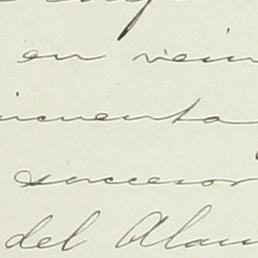 en vein
incuenta
sucesor
del Alam